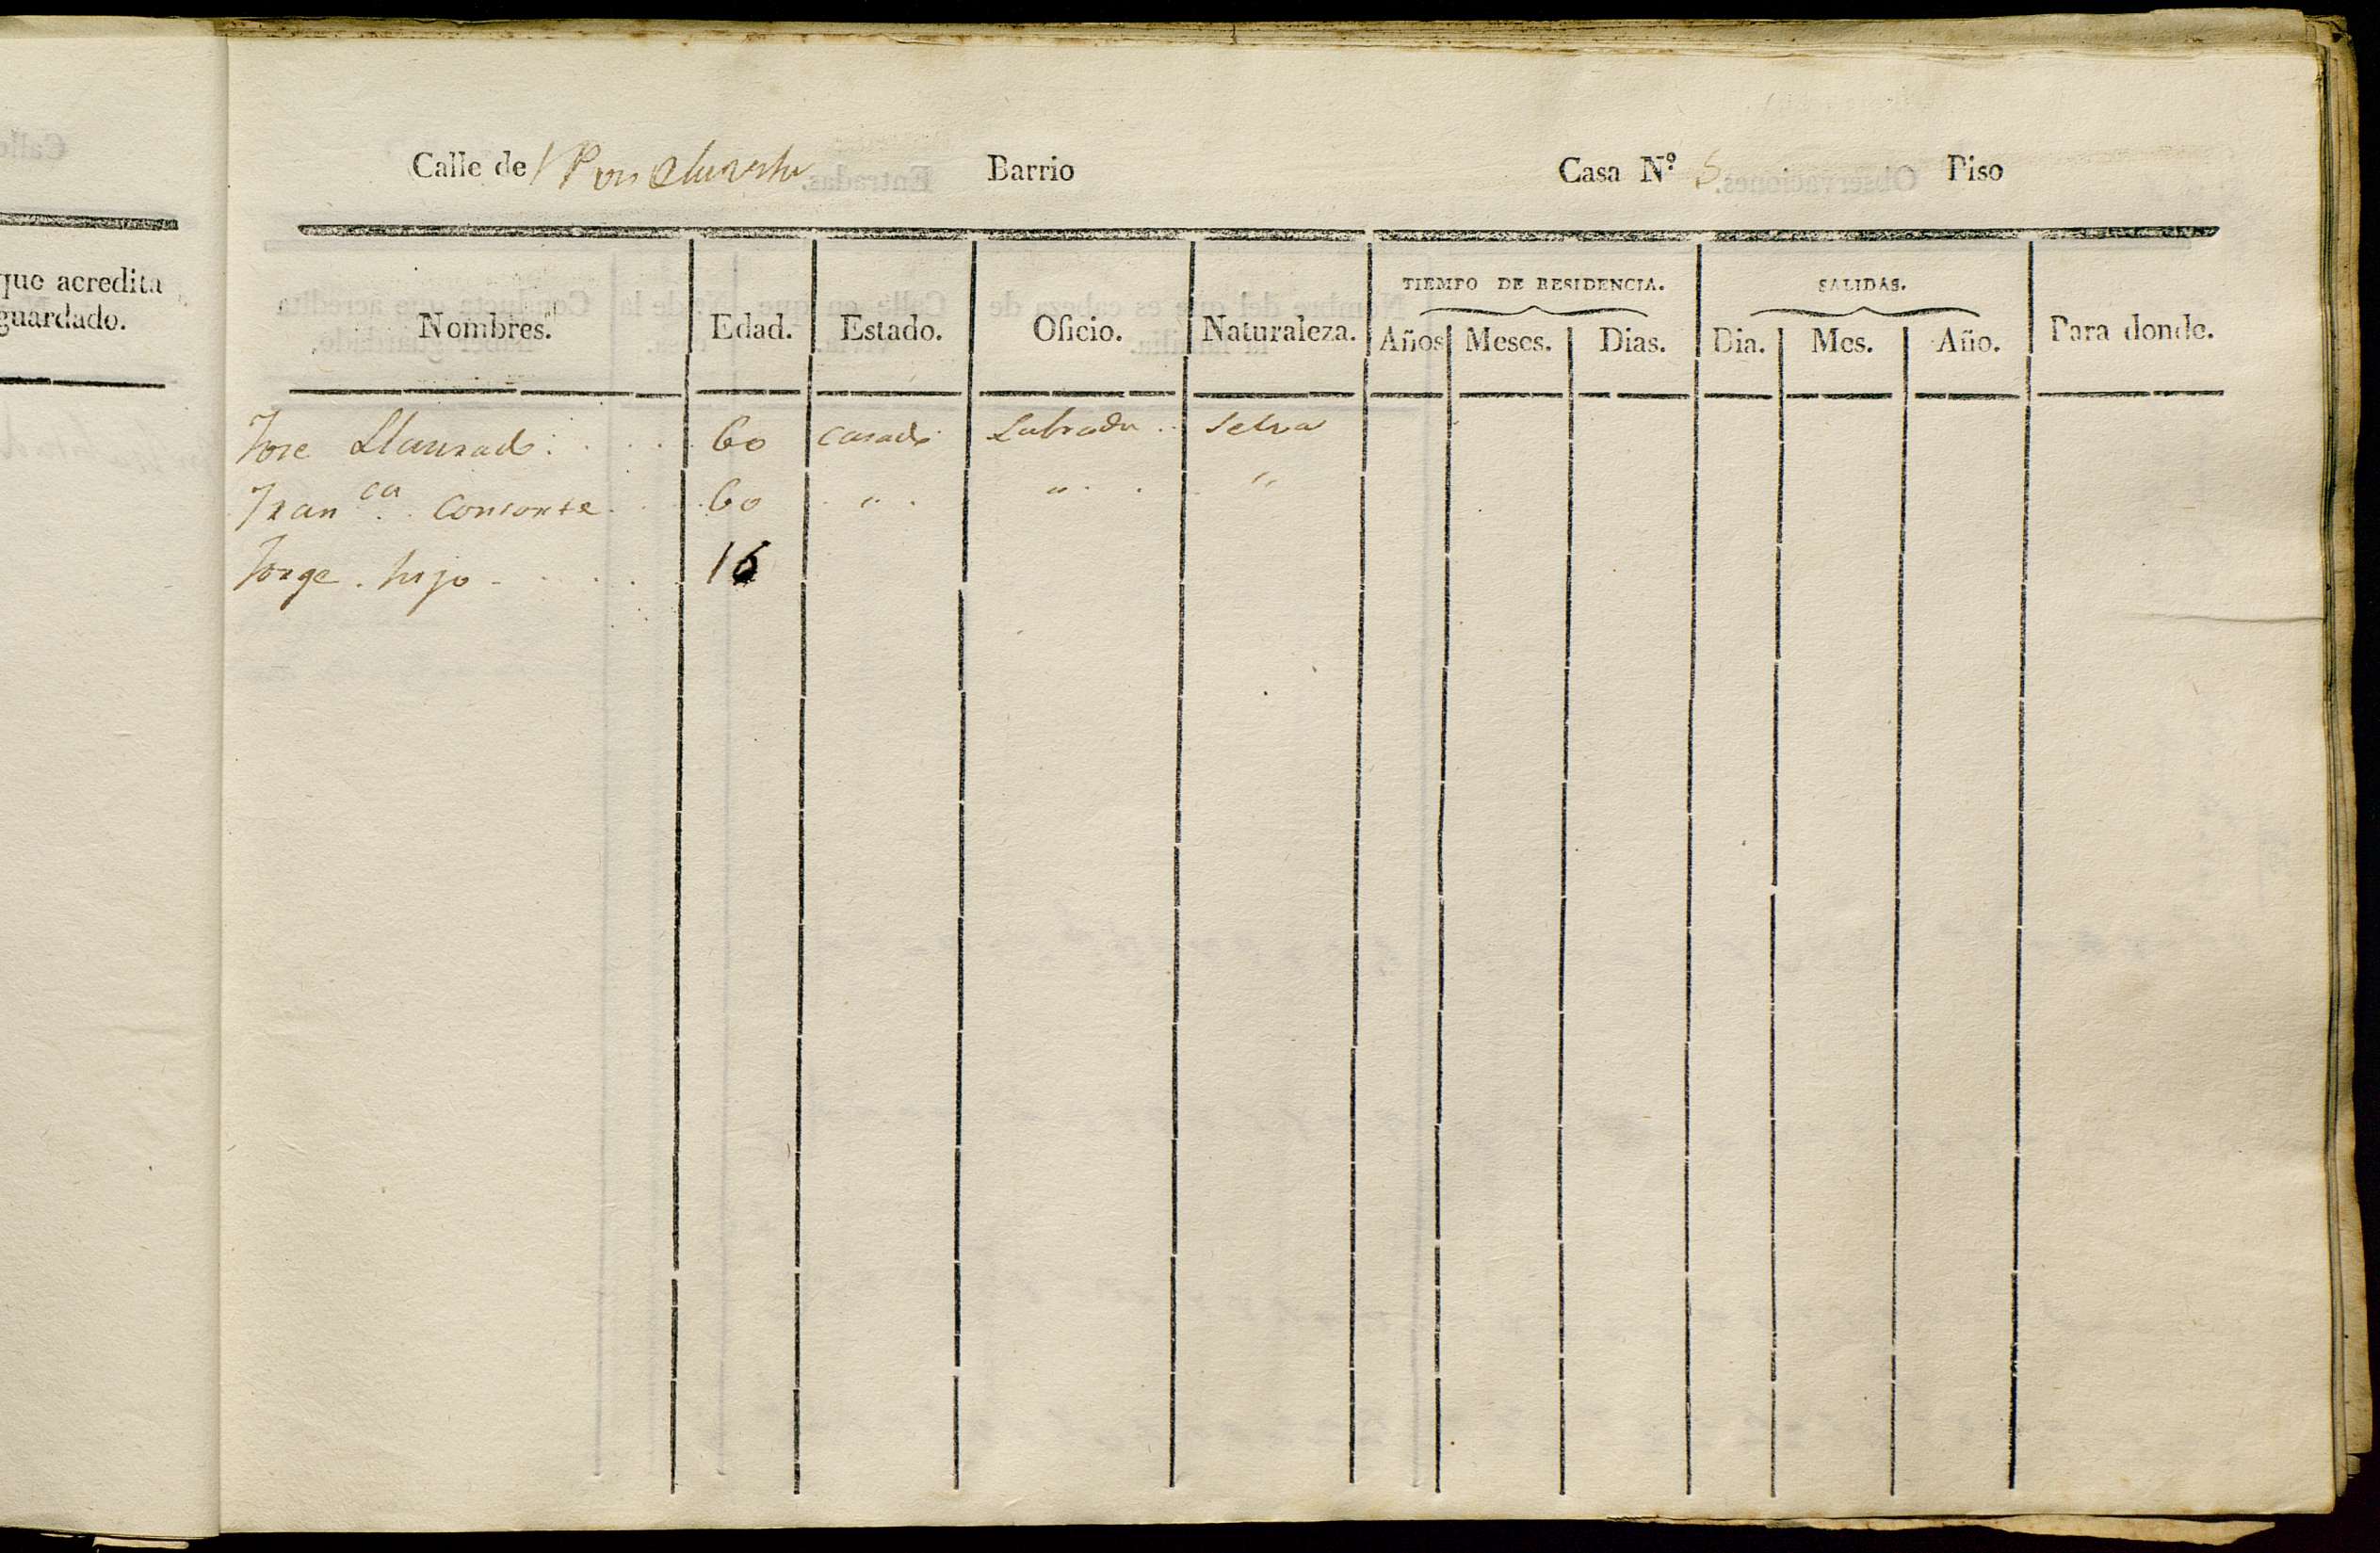 que acredita
guardado.
Calle de Barrio Casa Nº 5 Piso
Nombres. Edad. Estado. Oficio. Naturaleza. TIEMPO DE RESIDENCIA. SALIDAS. Para donde.
Años Meses. Dias. Dia. Mes. Año.
Jose Llauzado 60 casado Labrador Selva
Franca. consorte 60 " " "
Jorge. hijo 16